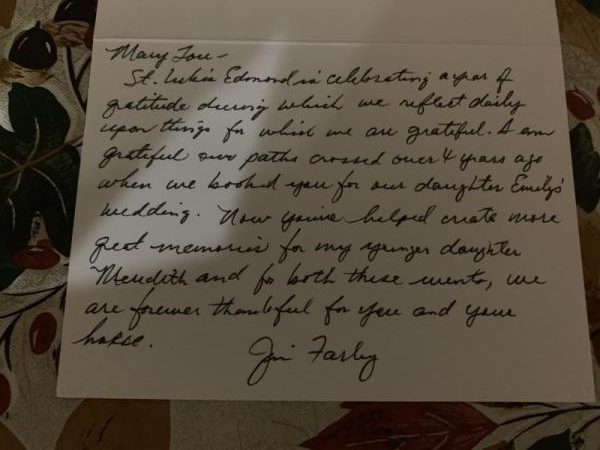 Mary Lou-
St. Luke's Edmond is celebrating a year of
gratitude during which we reflect daily
upon things for which we are grateful. I am
grateful our paths crossed over 4 years ago
when we booked you for our daughter Emily's
wedding. Now you've helped create more
great memories for my younger daughter
Meredith and for both these events, we
are forever thankful for you and your
horse.
Jim Farley